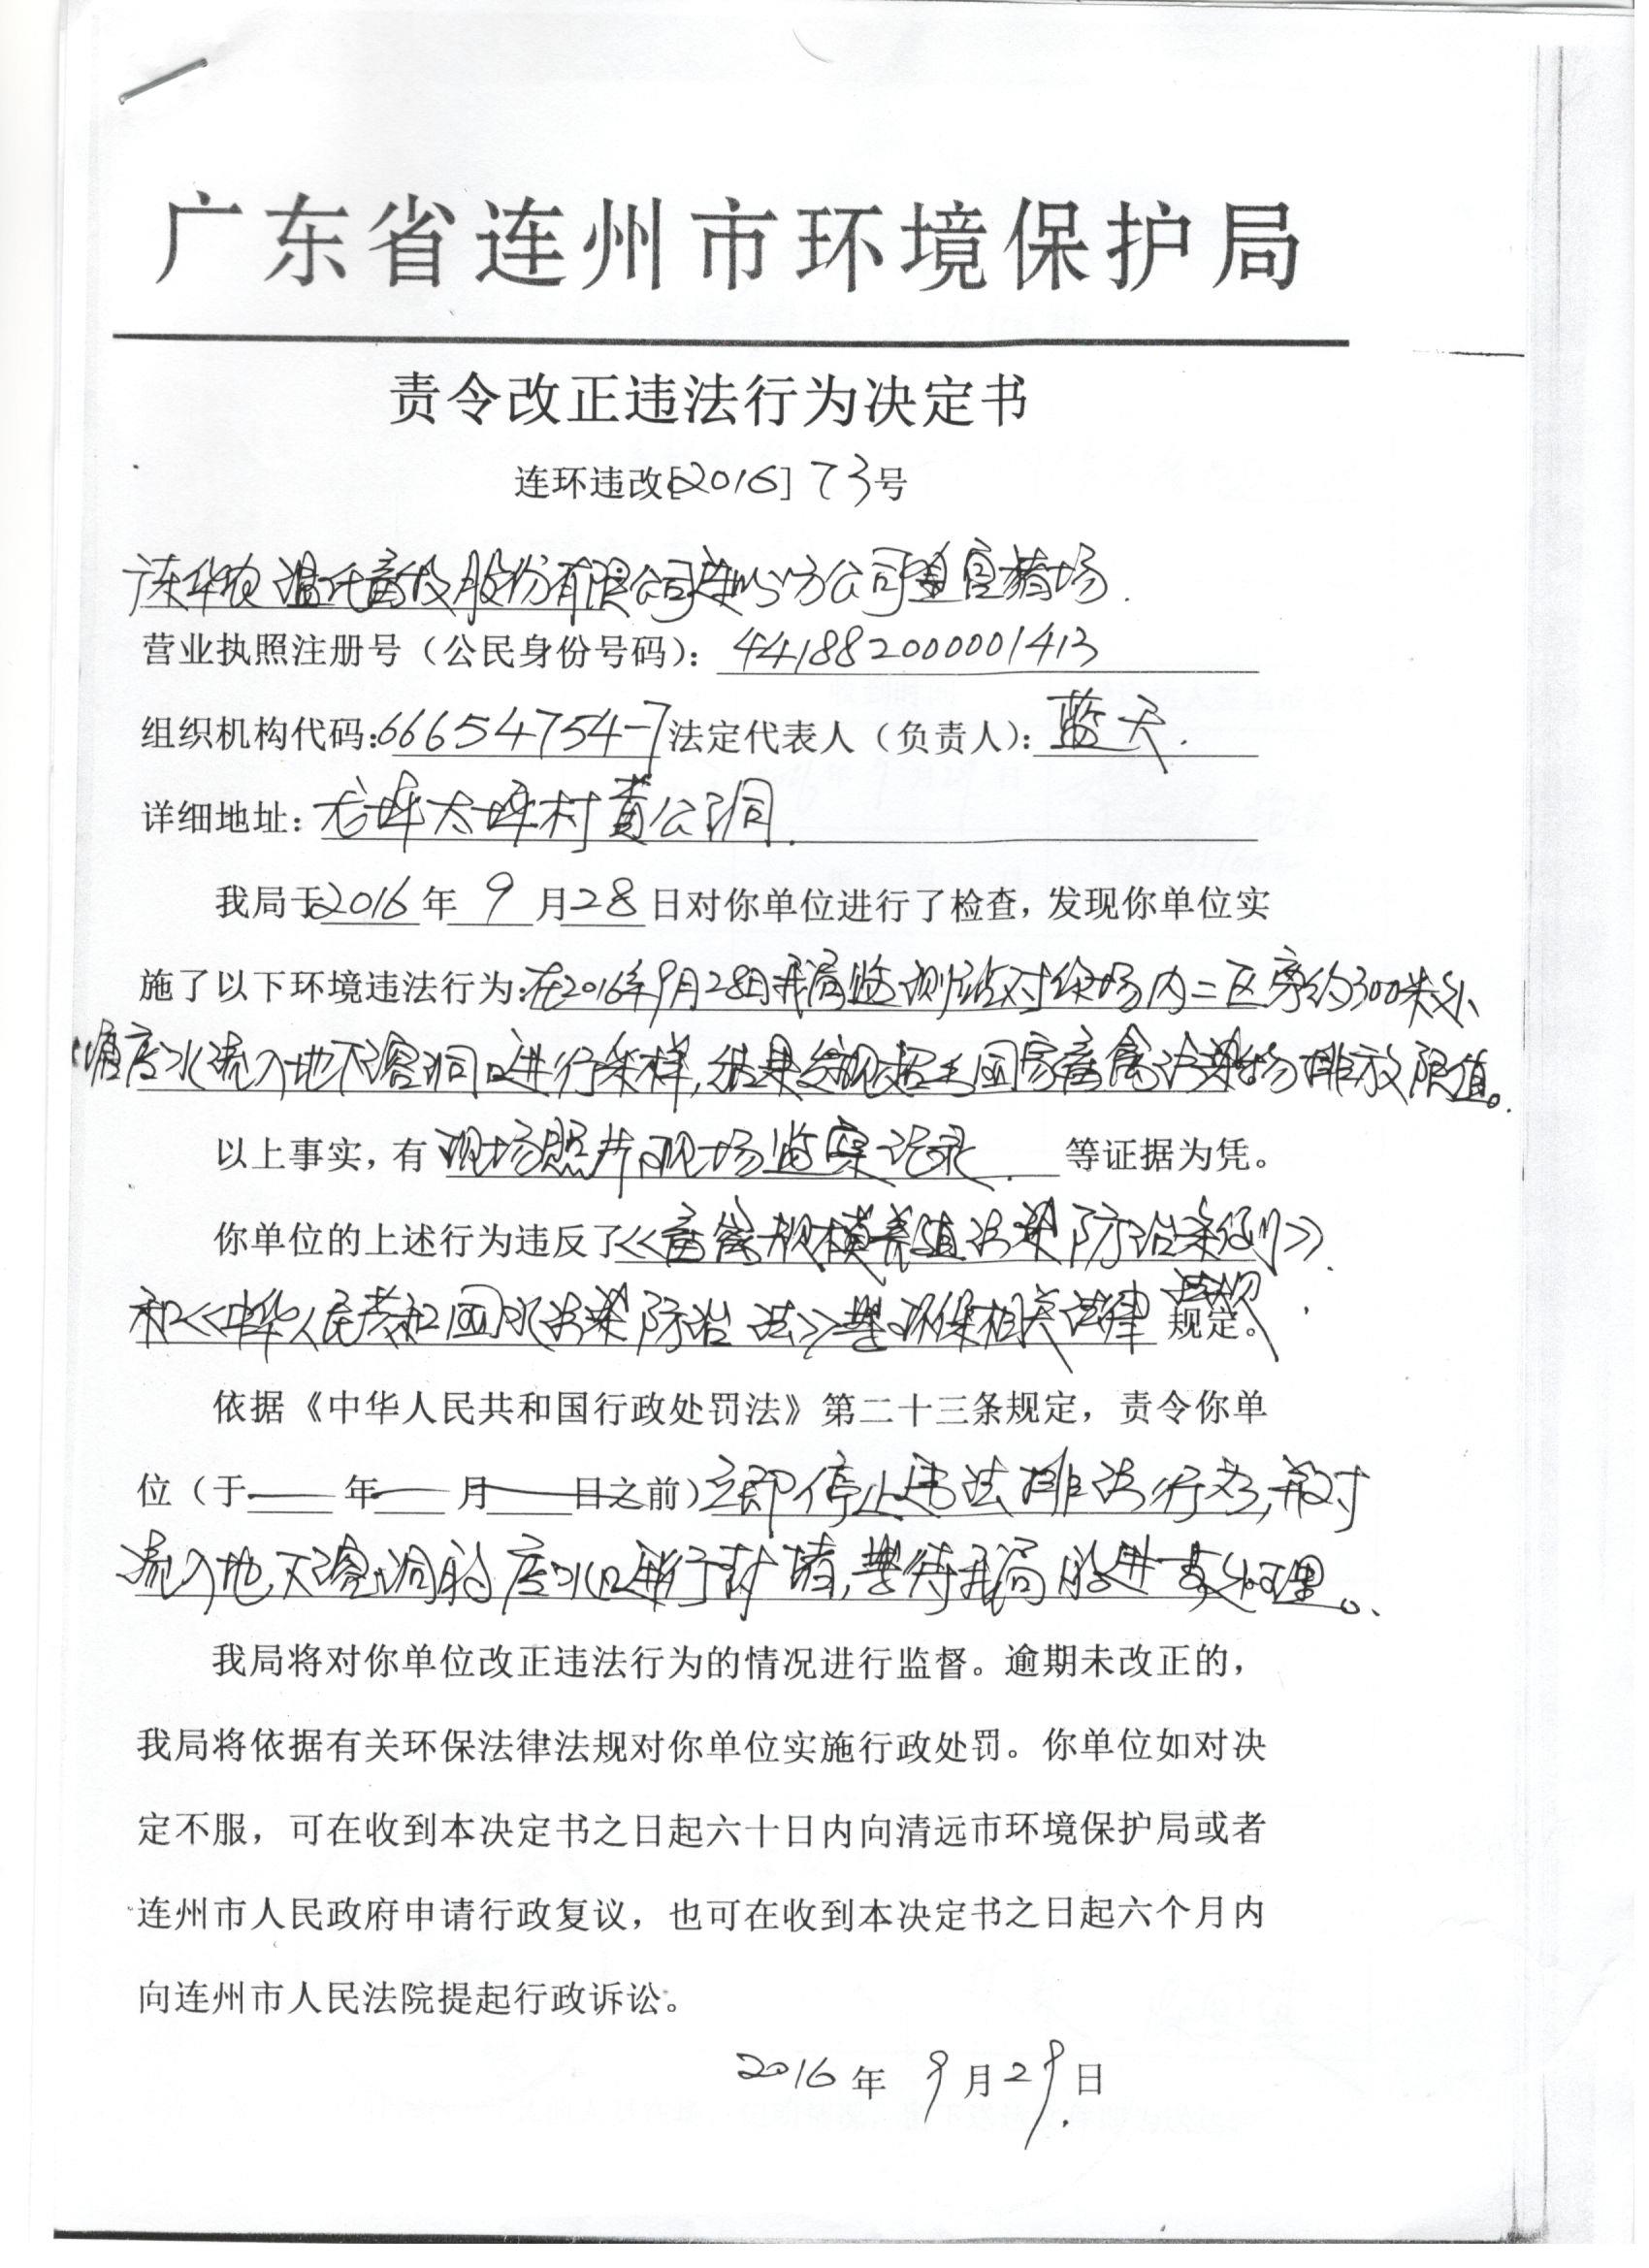 广东省连州市环境保护局
责令改正违法行为决定书
连环违改[2016]73号
广东华农温氏畜牧股份有限公司连州分公司黄宫猪场.
营业执照注册号（公民身份号码）：441882000001413
组织机构代码:66654754-7法定代表人（负责人）：蓝天.
详细地址：龙坪太坪村黄公洞.
我局于2016年9月28日对你单位进行了检查，发现你单位实
施了以下环境违法行为:在2016年9月28日我局监测站对你场内二区旁约300米外
塘废水流入地下溶洞口进行采样,结果发现超出国家畜禽污染物排放限值。
以上事实，有现场照片现场监察记录.等证据为凭。
你单位的上述行为违反了《畜禽规模养殖污染防治条例》.
和《中华人民共和国水污染防治法》等环保相关法律法规规定。
依据《中华人民共和国行政处罚法》第二十三条规定，责令你单
位（于 年 月 日之前）立即停止违法排污行为,并对
流入地下溶洞的废水口进行封堵,等待我局的进一步处理。
我局将对你单位改正违法行为的情况进行监督。逾期未改正的，
我局将依据有关环保法律法规对你单位实施行政处罚。你单位如对决
定不服，可在收到本决定书之日起六十日内向清远市环境保护局或者
连州市人民政府申请行政复议，也可在收到本决定书之日起六个月内
向连州市人民法院提起行政诉讼。
2016年9月29日